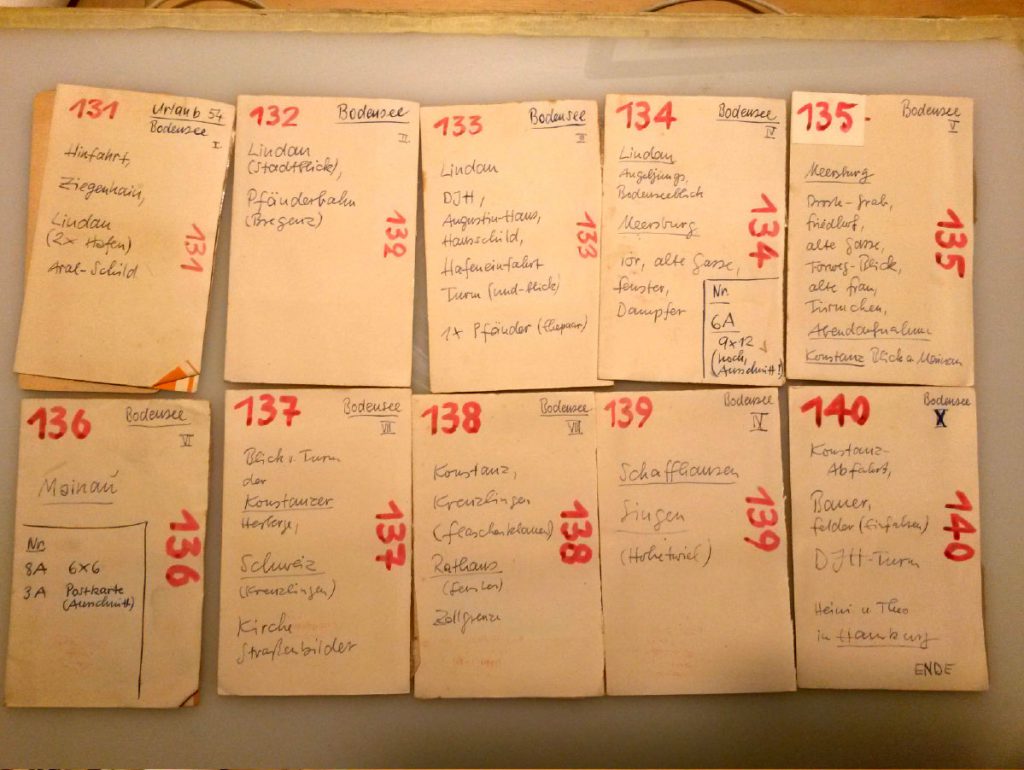 131 Urlaub 54
Bodensee
I.
Hinfahrt,
Ziegenhain,
Lindau
(2x Hafen)
Aral-Schild
131
132 Bodensee
II.
Lindau
(Stadtblick),
Pfänderbahn
(Bregenz)
132
133 Bodensee
III
Lindau
DJH,
Augustin-Haus,
Hausschild,
Hafeneinfahrt
Turm (und-blick)
1x Pfänder (Ehepaar)
133
134 Bodensee
IV
Lindau
Bodenseeblick
Meersburg
Tor, alte Gasse,
Fenster,
Dampfer
134
Nr.
6A
9x12
(hoch,
Ausschnitt!)
135. Bodensee
V
Meersburg
Droste-Grab,
Friedhof,
alte Gasse,
Torweg-Blick,
alte Frau,
Türmchen,
Abendaufnahme
Konstanz Blick a. Mainau
135
136 Bodensee
VI
Mainau
Nr.
8A 6x6
3A Postkarte
(Ausschnitt)
136
137 Bodensee
VII
Blick v. Turm
der
Konstanzer
Herberge,
Schweiz
(Kreuzlingen)
Kirche
Straßenbilder
137
138 Bodensee
VIII
Konstanz,
Kreuzlingen
Rathaus
(Fenster)
Zollgrenze
138
139 Bodensee
IX
Schaffhausen
Singen
(Hohentwiel)
139
140 Bodensee
X
Konstanz-
Abfahrt,
Bauer,
Felder (Einfahren)
DJH-Turm
Heini u Theo
in Hamburg
ENDE
140